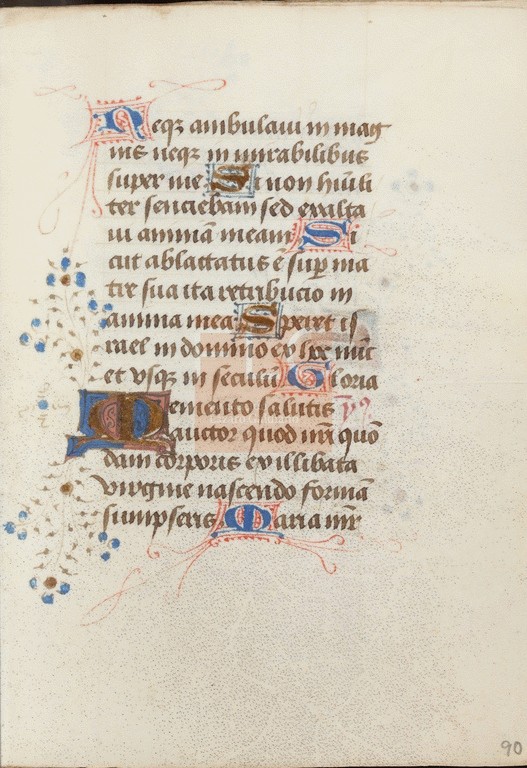 Neq̄ ambulaui in mag
nis neq̄ in mirabilibus
super me Si non hūili
ter senciebam sed exalta
ui animā meam Si
cut ablactatus ē suꝑ ma
tre sua ita retribucio in
anima mea Speret is
rael in domino ex hoc nūc
et vsq̄ in seculū Gloria
Memento salutis ym̄.
auctor quod nr̄i quō
dam corporis ex illibata
virgine nascendo formā
sumpseris Maria mr̄
90